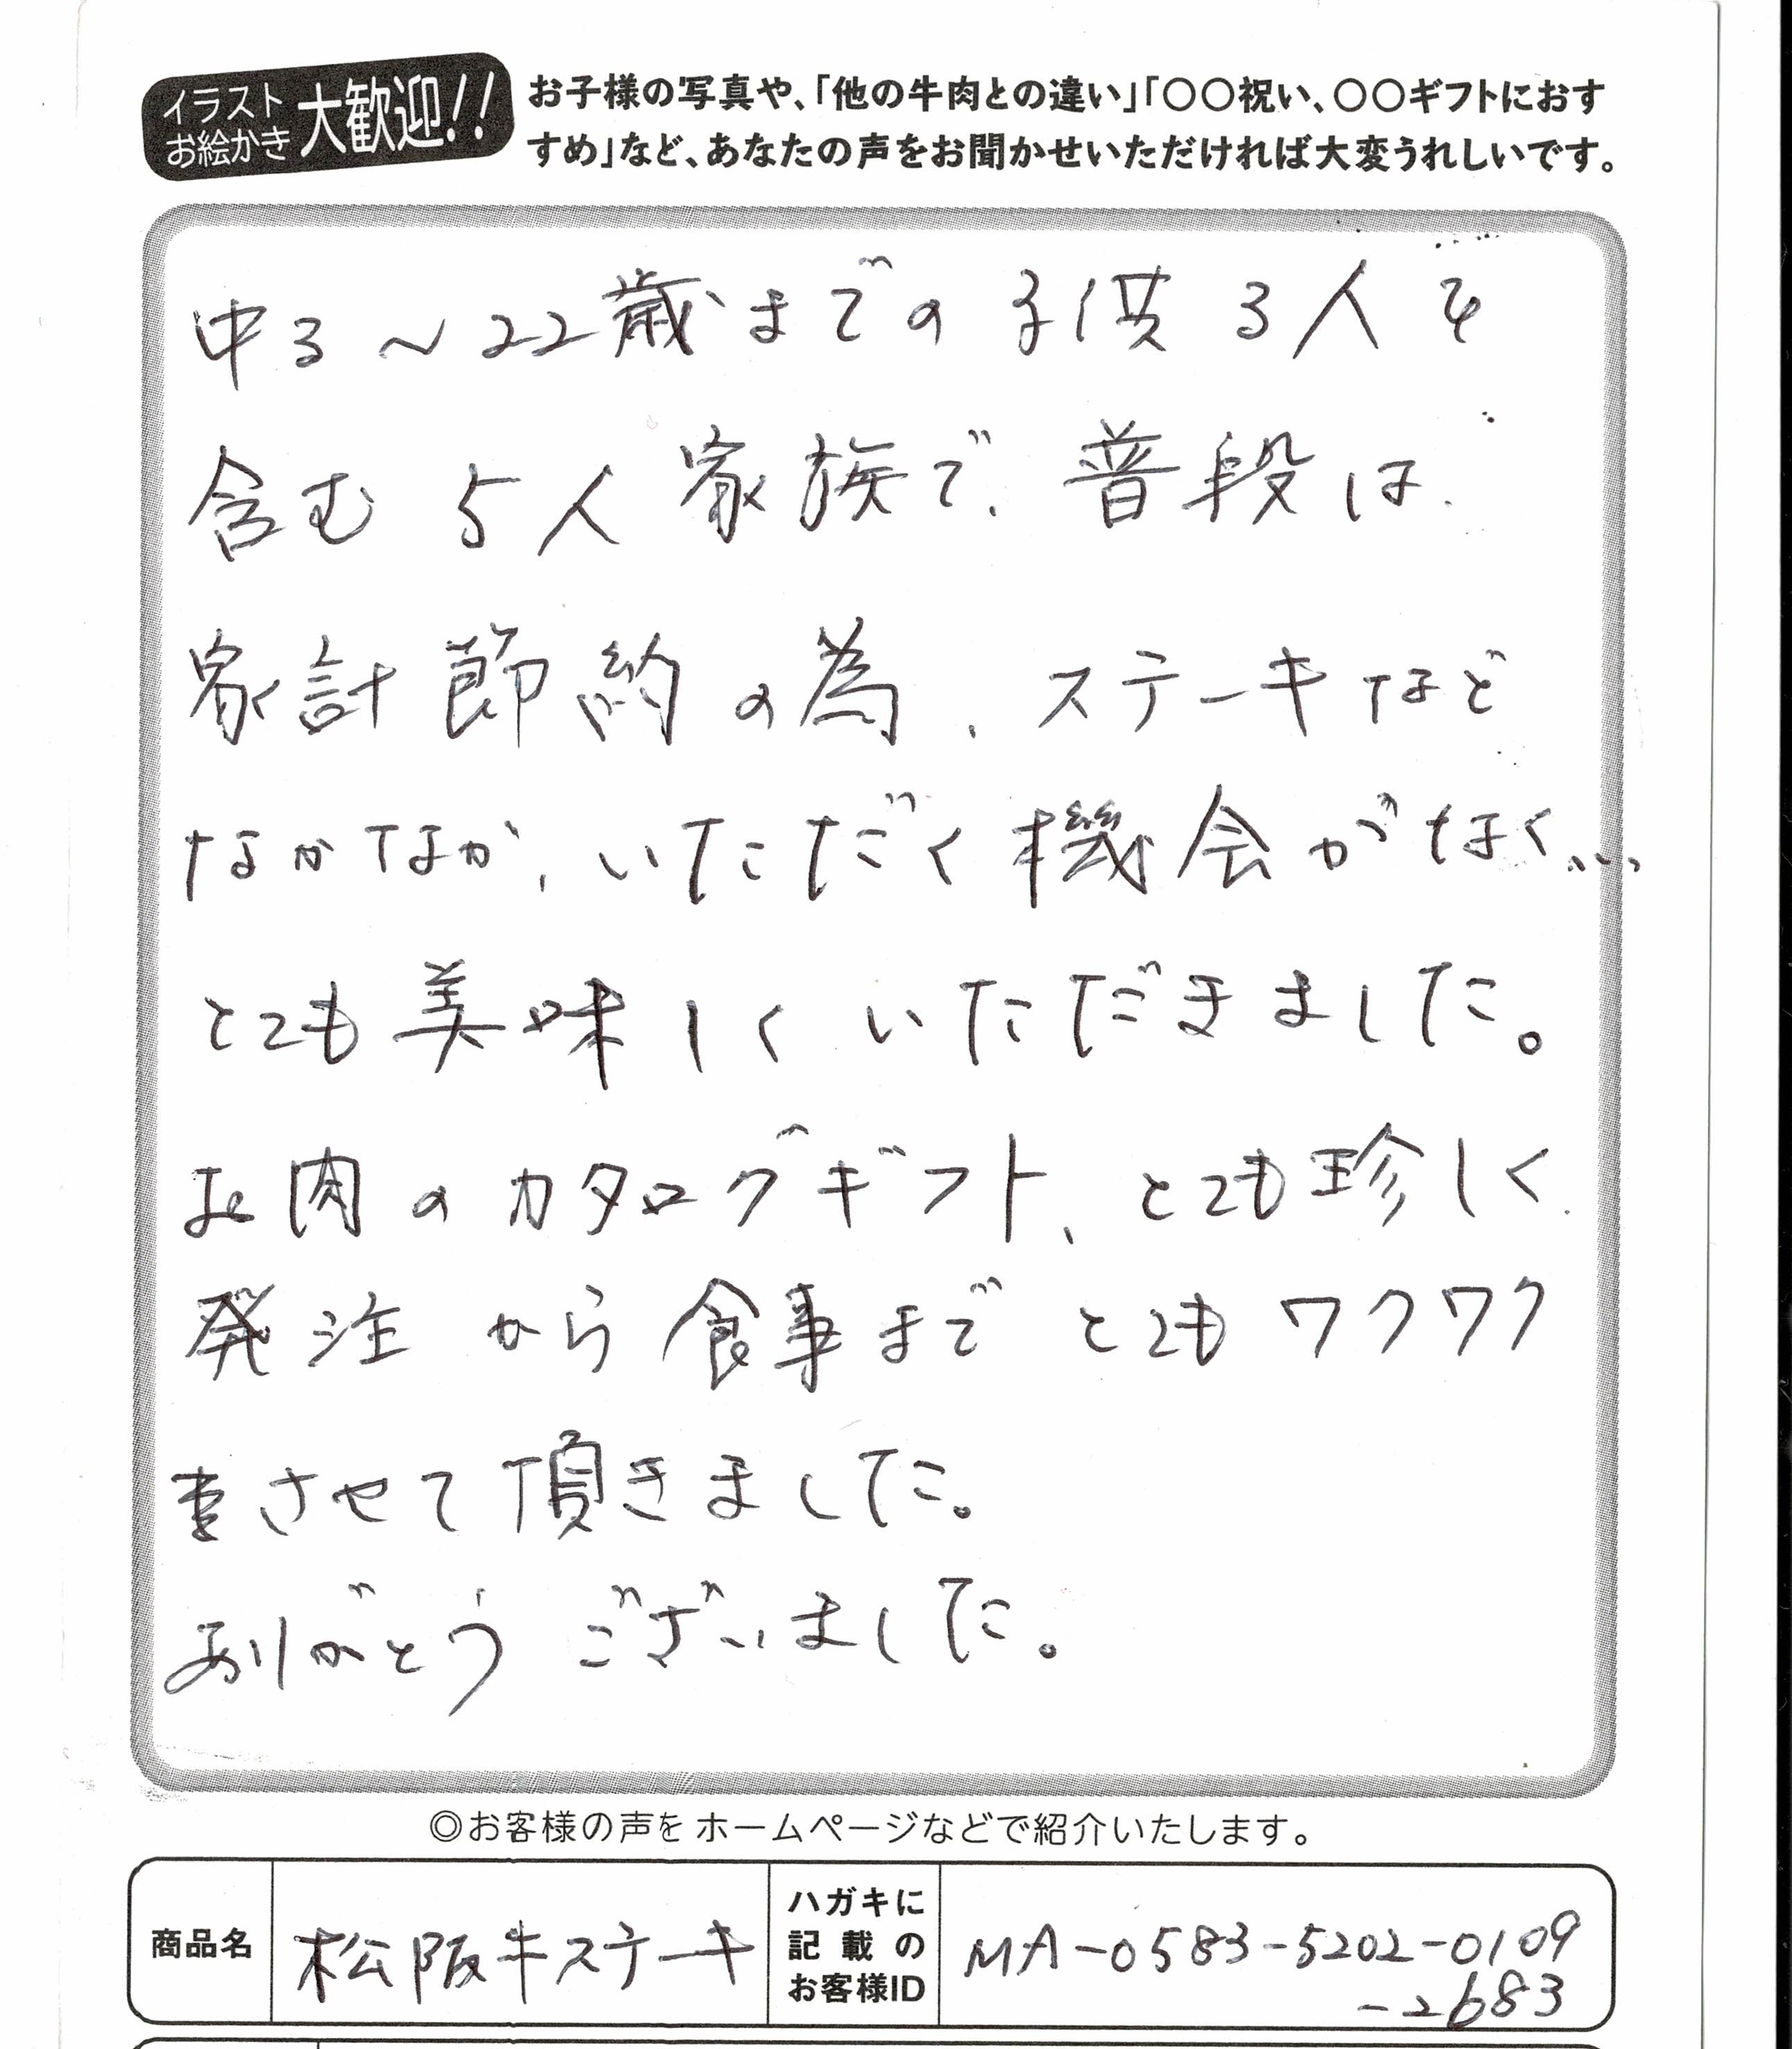 イラスト
お絵かき
大歓迎!!
お子様の写真や、「他の牛肉との違い」「〇〇祝い、〇〇ギフトにおす
すめ」など、あなたの声をお聞かせいただければ大変うれしいです。
中3～22歳までの子供3人を
含む5人家族で、普段は、
家計節約の為、ステーキなど
なかなか、いただく機会がなく…
とても美味しくいただきました。
お肉のカタログギフト、とても珍しく
発注から食事までとてもワクワク
させて頂きました。
ありがとうございました。
◎お客様の声をホームページなどで紹介いたします。
商品名
松阪牛ステーキ
ハガキに
記載の
お客様ID
MA-0583-5202-0109
-2683